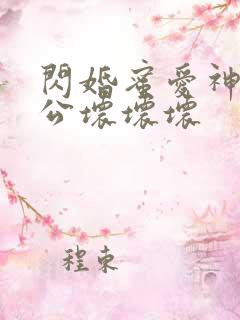 閃婚蜜愛神
公壞壞壞
程東